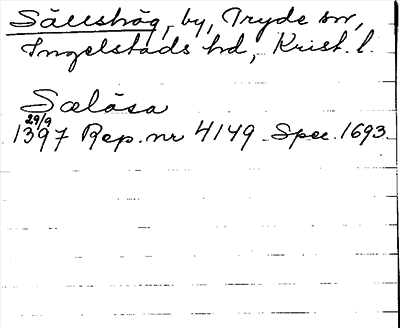 Sällshög, by, Tryde sn,
Ingelstads hd, Krist. l.
Sælåsa
29/9
1397 Rep. nr 4149 Spec. 1693.